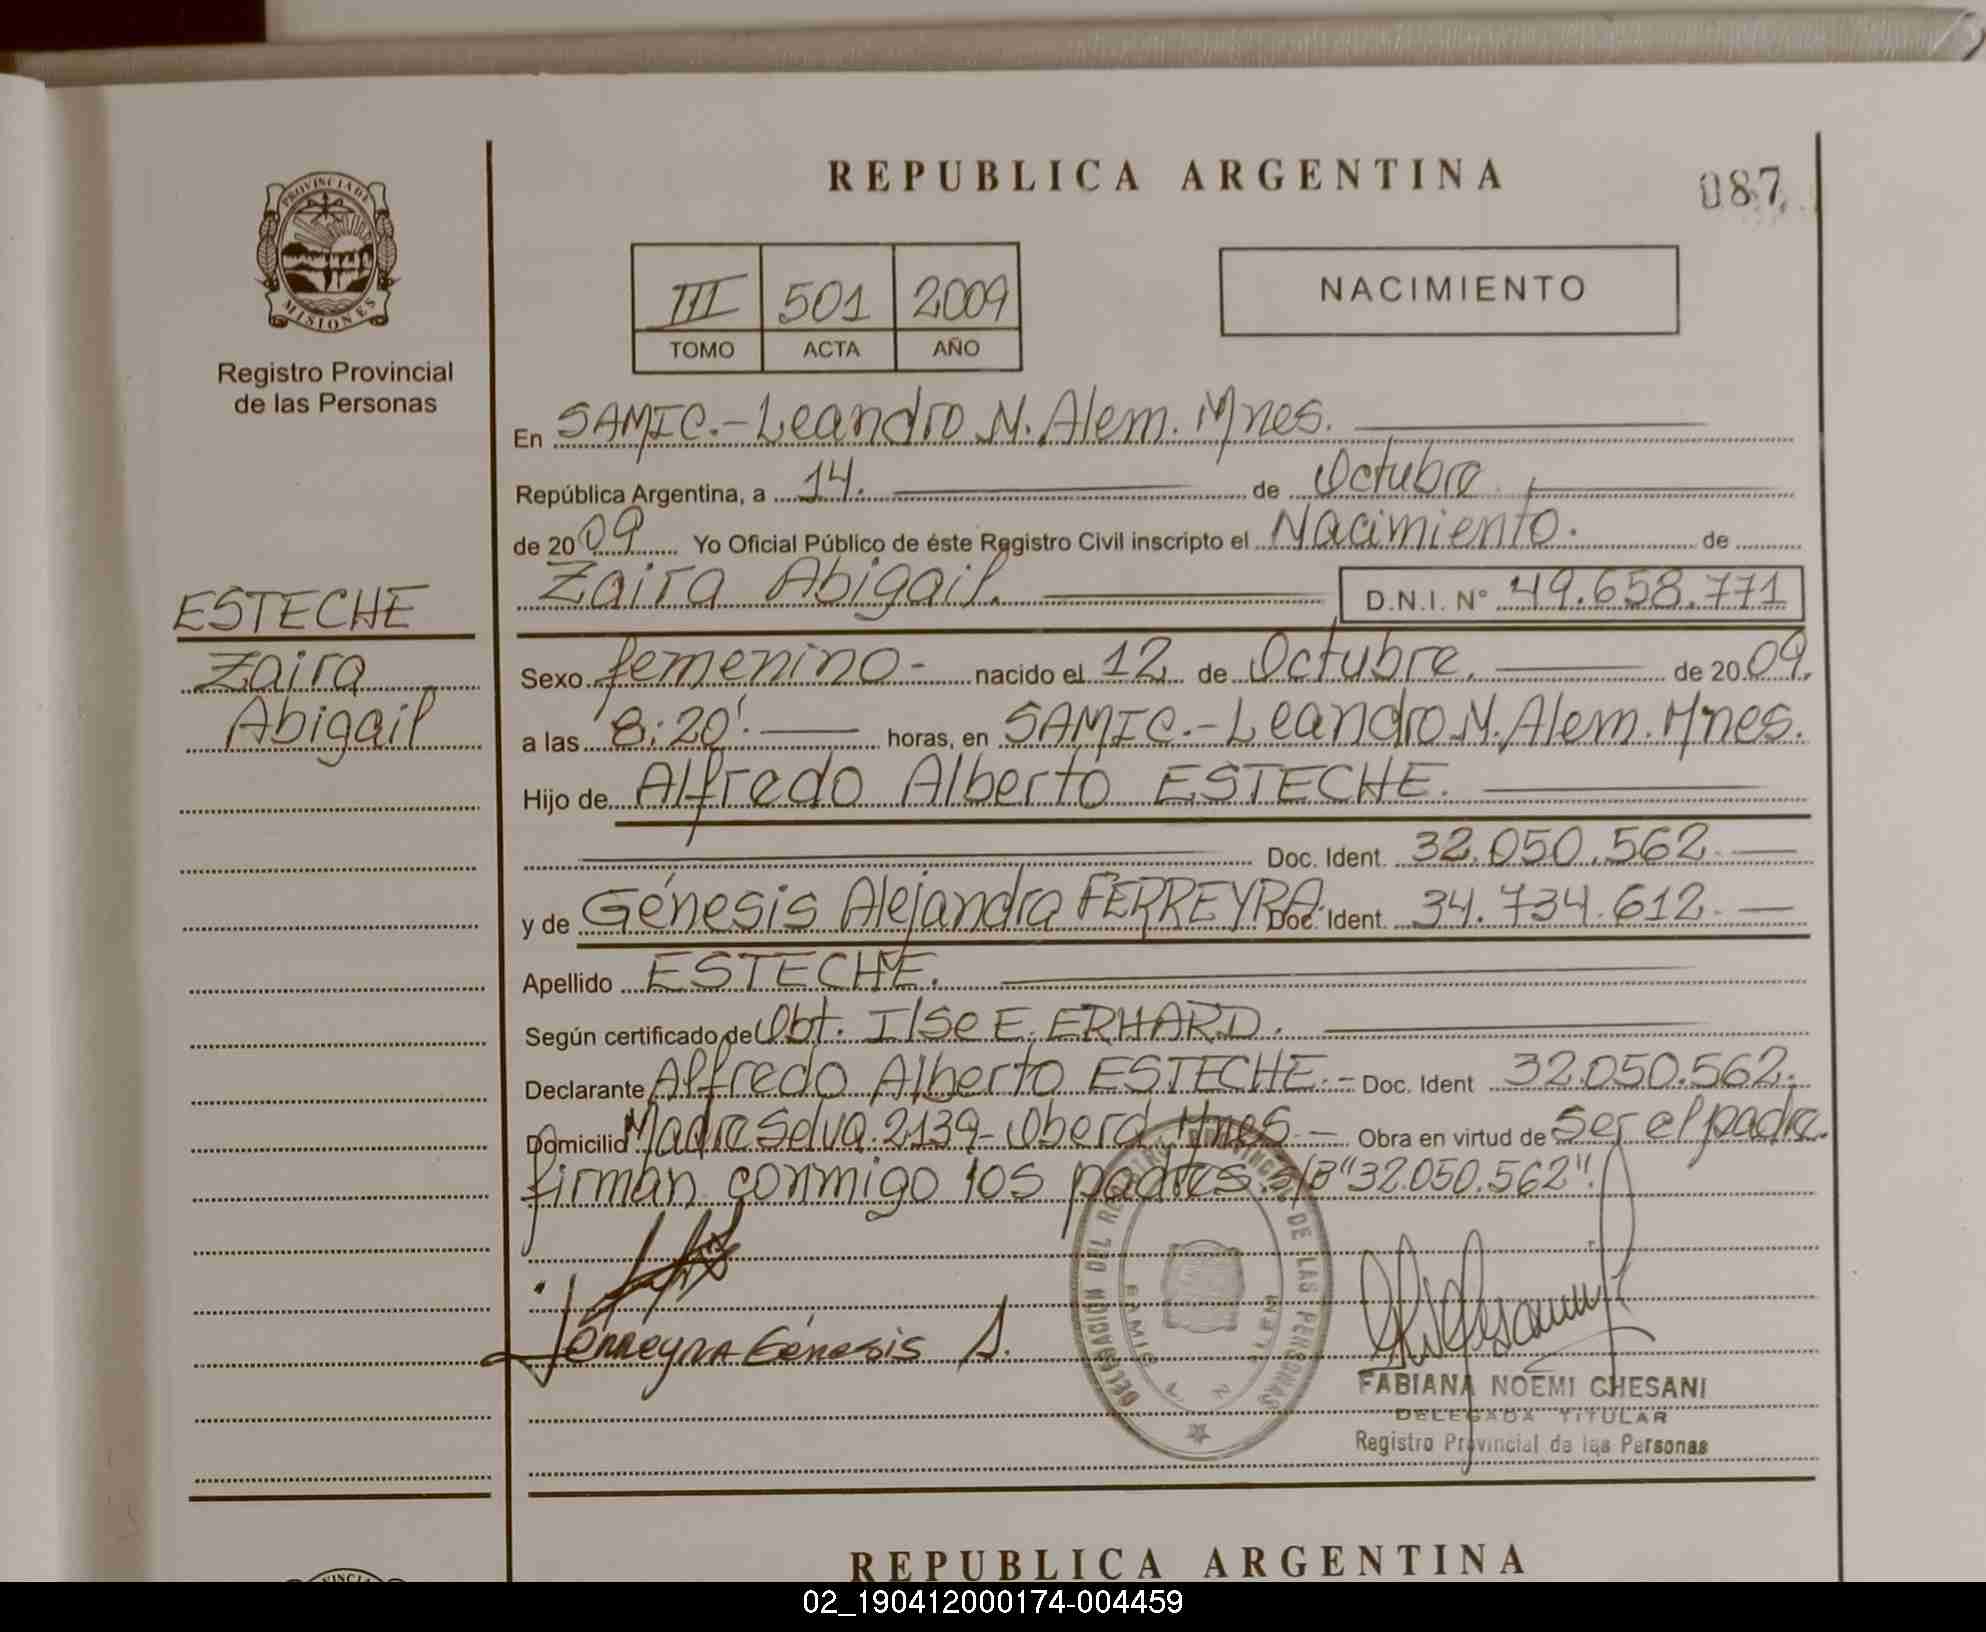 REPUBLICA ARGENTINA
087
PROVINCIA DE
MISIONES
Registro Provincial
de las Personas
III 501 2009
TOMO ACTA AÑO
NACIMIENTO
En SAMIC.-Leandro N. Alem. Mnes.
República Argentina, a 14. de Octubre
de 2009 Yo Oficial Público de éste Registro Civil inscripto el Nacimiento. de
Zaira Abigail. D.N.I. N° 49.658.771
ESTECHE
Zaira
Abigail
Sexo femenino- nacido el 12 de Octubre. de 2009.
a las 8:20'. horas, en SAMIC.-Leandro N. Alem. Mnes.
Hijo de Alfredo Alberto ESTECHE.
Doc. Ident. 32.050.562
y de Génesis Alejandra FERREYRA. Doc. Ident. 34.734.612.
Apellido ESTECHE.
Según certificado de Obt. Ilse E. ERHARD.
Declarante Alfredo Alberto ESTECHE.- Doc. Ident 32.050.562.
Domicilio Madre Selva 2139-Oberá. Mnes.- Obra en virtud de ser el padre.
firman conmigo los padres. s/B "32.050.562".
DELEGACION DEL REGISTRO PROVINCIAL DE LAS PERSONAS
Ferreyra Génesis A.
FABIANA NOEMI CHESANI
DELEGADA TITULAR
Registro Provincial de las Personas
REPUBLICA ARGENTINA
02_190412000174-004459